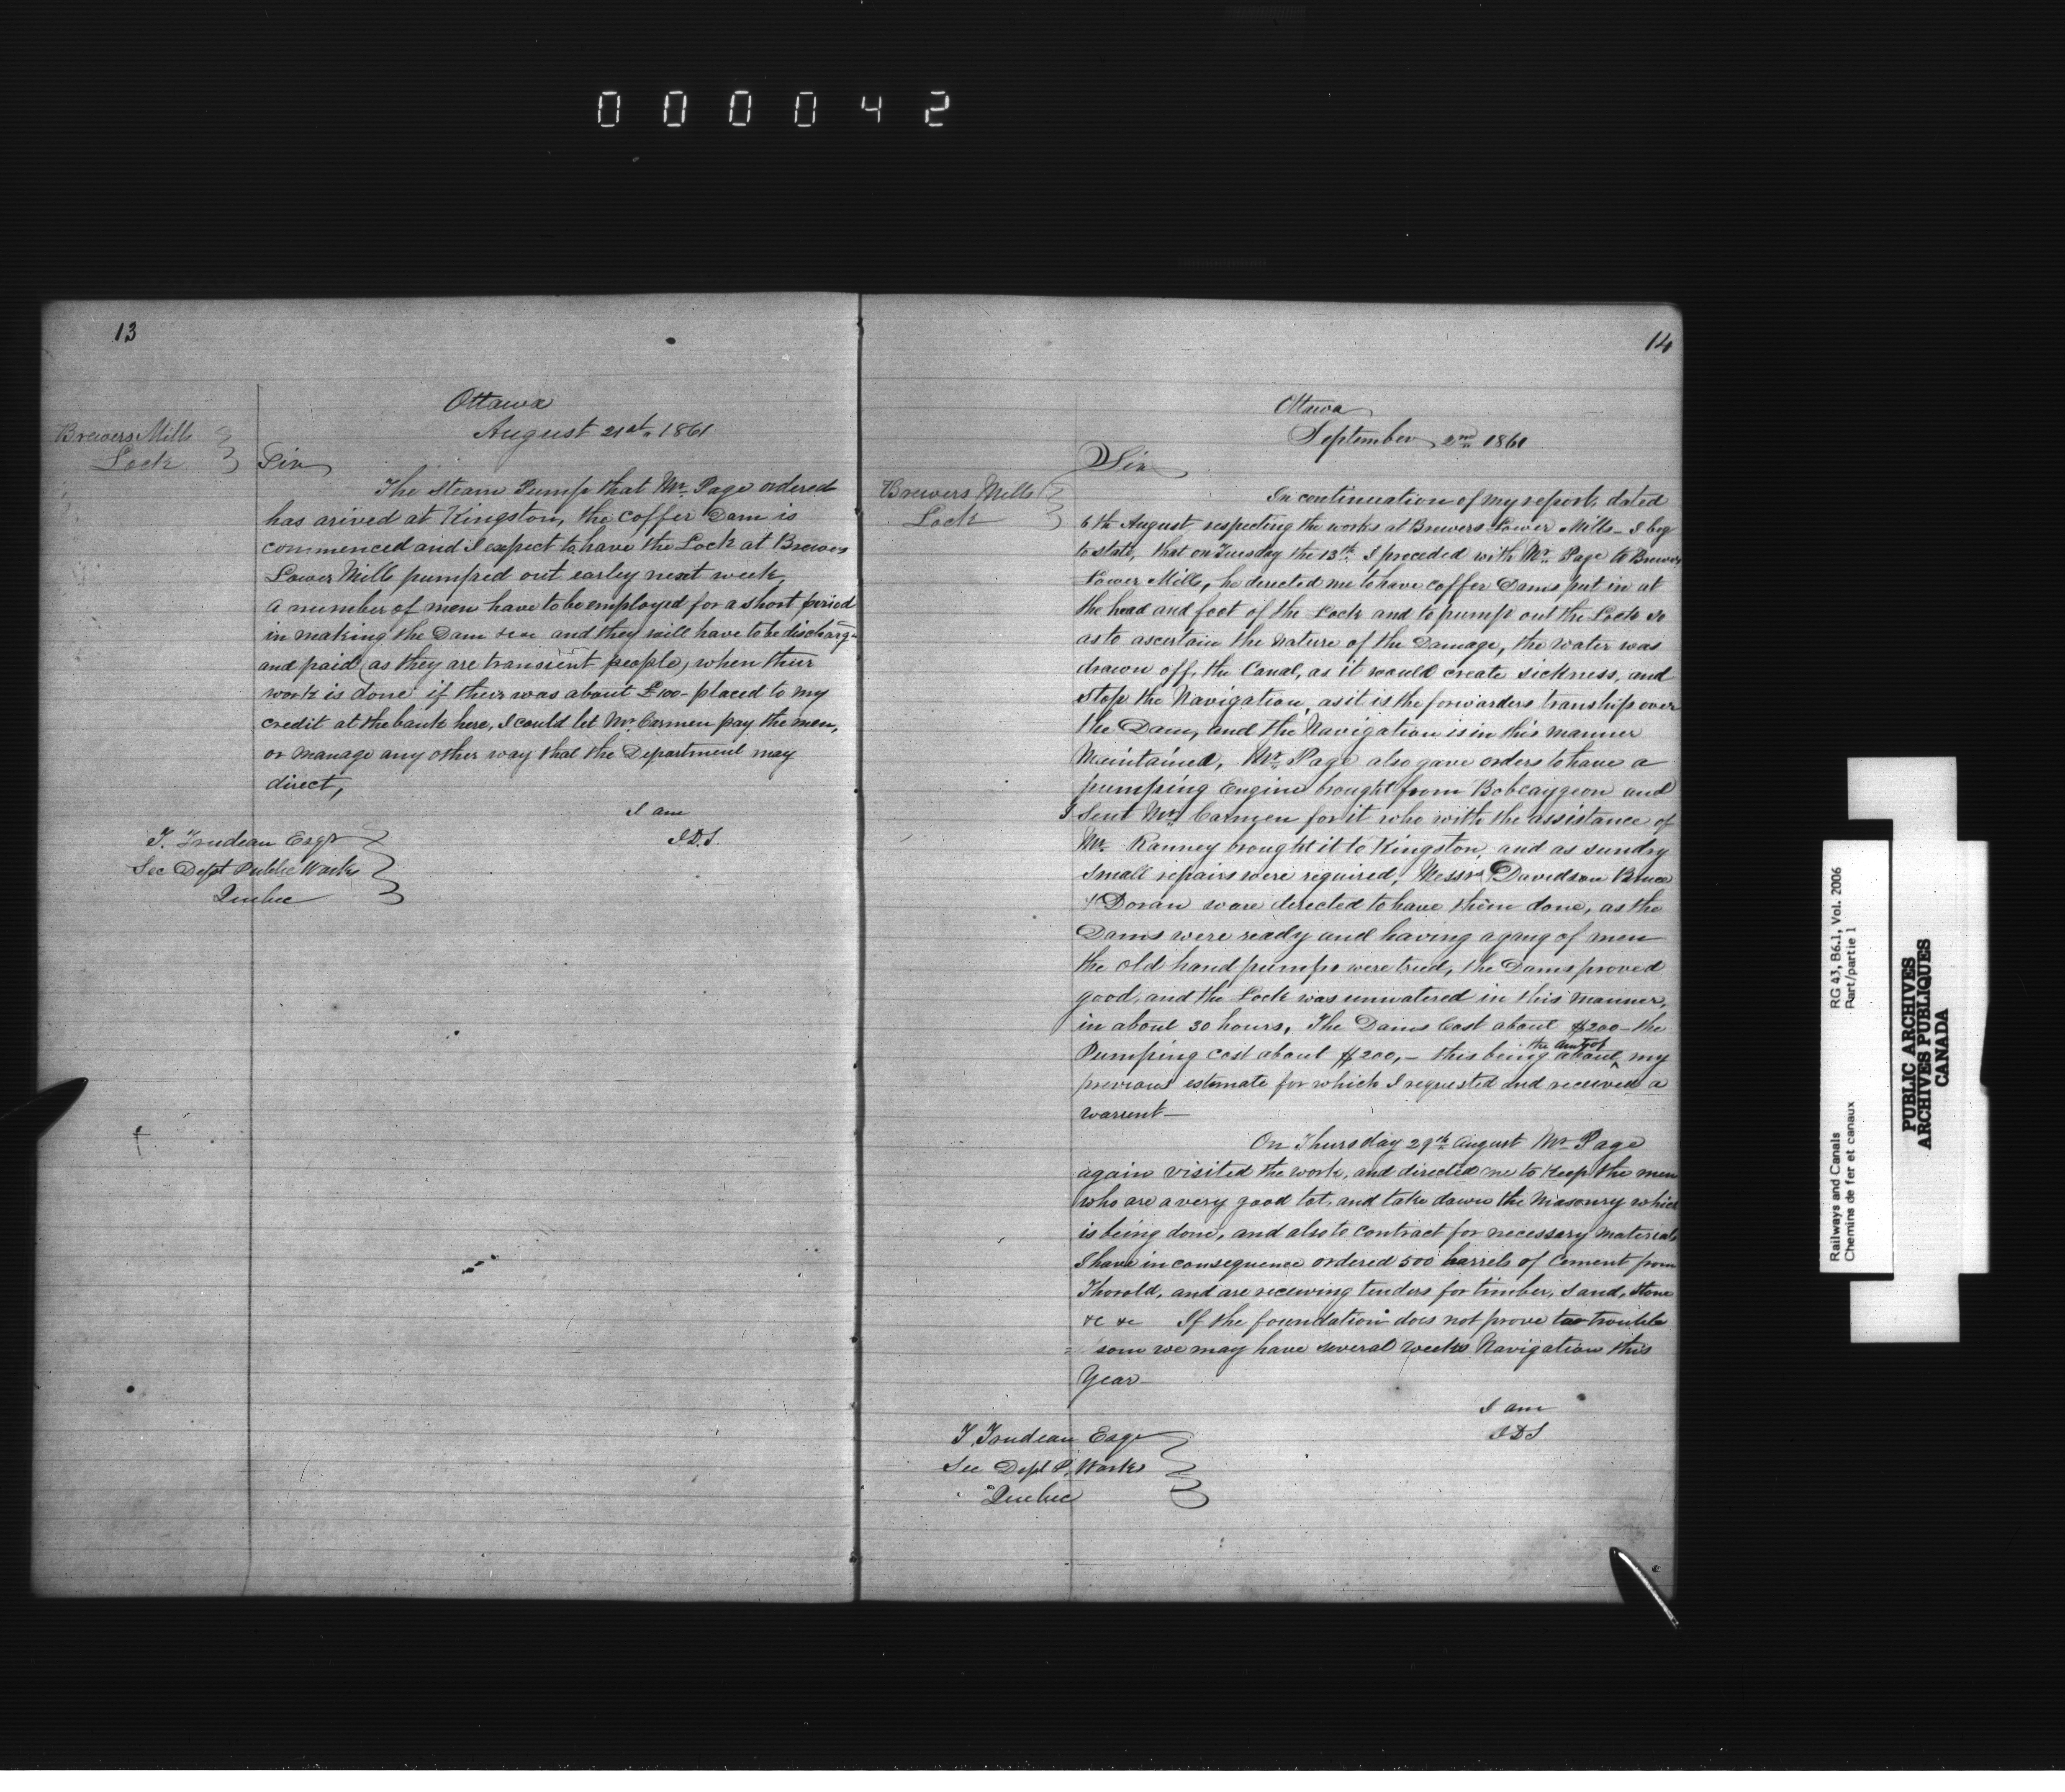 000042
13
Ottawa
August 21st 1861
Brewers Mills
Lock
Sir
The steam Pump that Mr Page ordered
has arived at Kingston, the coffer Dam is
commenced and I expect to have the Lock at Brewers
Lower Mills pumped out earley next week,
a number of men have to be employed for a short period
in making the Dam &c &c and they will have to be discharg
and paid (as they are transient people) when their
work is done if their was about £100- placed to my
credit at the bank here, I could let Mr Carmen pay the men,
or manage any other way that the Department may
direct,
I am
J.D.S.
T. Trudeau Esqr
Sec Dept Public Works
Quebec
14
Ottawa
September 2nd 1861
Sir
Brewers Mills
Lock
In continuation of my report, dated
6th August respecting the works at Brewers Lower Mills - I beg
to state, that on Tuesday the 13th I preceded with Mr Page to Brewers
Lower Mills, he derected me to have coffer Dams put in at
the head and foot of the Lock and to pump out the Lock so
as to ascertain the nature of the Damage, the water was
drawn off, the Canal, as it would create sickness, and
stop the Navigation, as it is the forwarders tranship over
the Dam, and the Navigation is in this manner
Maintained, Mr Page also gave orders to have a
pumping Engine brought from Bobcaygeon and
I sent Mr Carmen for it who with the assistance of
Mr Ranney brought it to Kingston, and as sundry
small repairs were required, Messrs Davidson Bruce
& Doran ware derected to have them done, as the
Dams were ready and having a gang of men
the old hand pumps were tried, the Dams proved
good, and the Lock was unwatered in this manner,
in about 30 hours, The Dams Cost about $200 - the
Pumping cost about $200,- this being about the amt of my
previous estimate for which I requested and received a
warrent -
On Thursday 29th August Mr Page
again visited the work, and directed me to keep the men
who are a very good lot, and take down the Masonry which
is being done, and also to contract for necessary materials
I have in consequence ordered 500 barrels of Cement from
Thorold, and are receiving tenders for timber, sand, stone
&c &c If the foundation does not prove too trouble
= som we may have several weeks Navigation this
Year
I am
JDS
T. Trudeau Esqr
Sec Dept P. Works
Quebec
Railways and Canals
Chemins de fer et canaux
RG 43, B6.1, Vol. 2006
Part/partie 1
PUBLIC ARCHIVES
ARCHIVES PUBLIQUES
CANADA